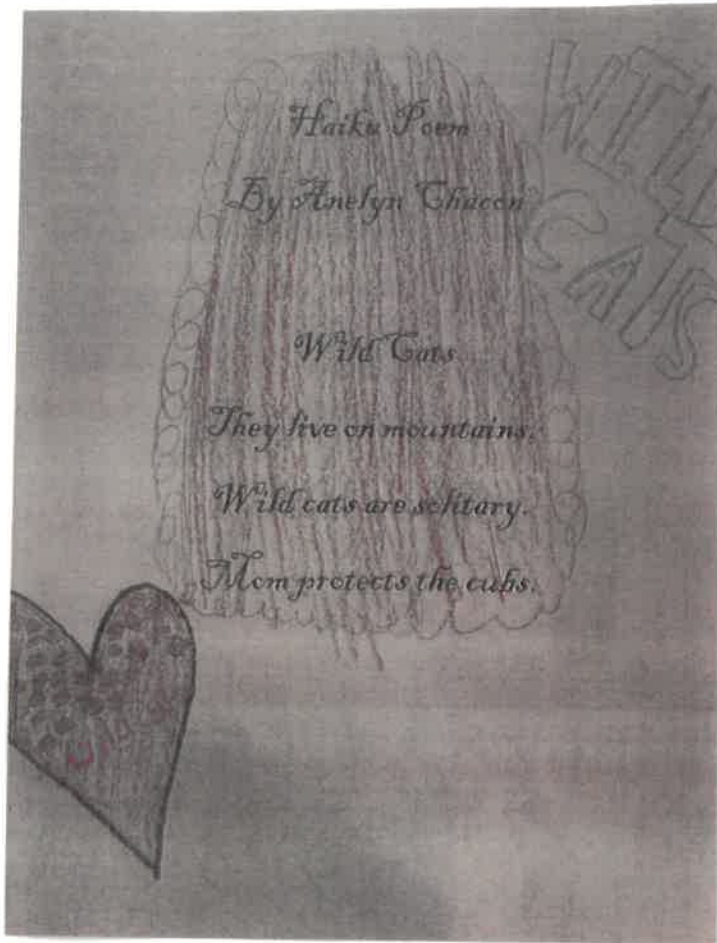 Haiku Poem
By Anelyn Chacon
WILD
CATS
Wild Cats
They live on mountains.
Wild cats are solitary.
Mom protects the cubs.